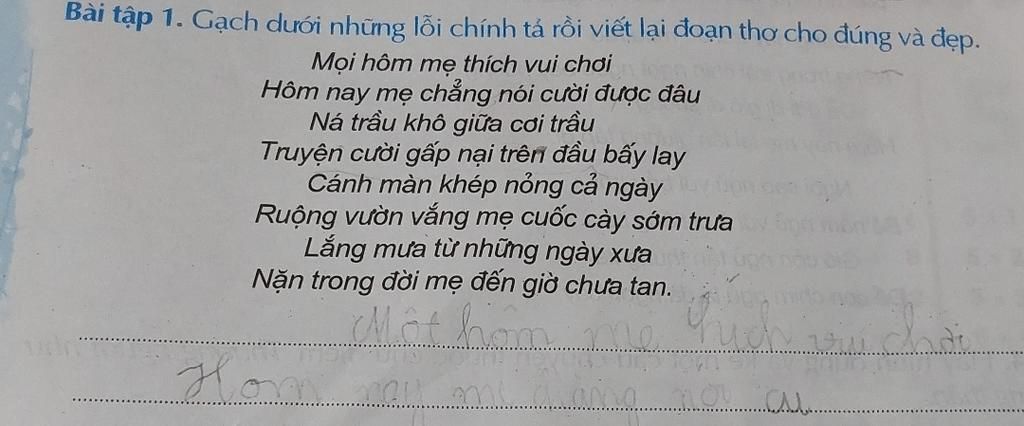 Bài tập 1. Gạch dưới những lỗi chính tả rồi viết lại đoạn thơ cho đúng và đẹp.
Mọi hôm mẹ thích vui chơi
Hôm nay mẹ chẳng nói cười được đâu
Ná trầu khô giữa cơi trầu
Truyện cười gấp nại trên đầu bấy lay
Cánh màn khép nỏng cả ngày
Ruộng vườn vắng mẹ cuốc cày sớm trưa
Lắng mưa từ những ngày xưa
Nặn trong đời mẹ đến giờ chưa tan.
Một hôm mẹ vui chơi
Hom nay